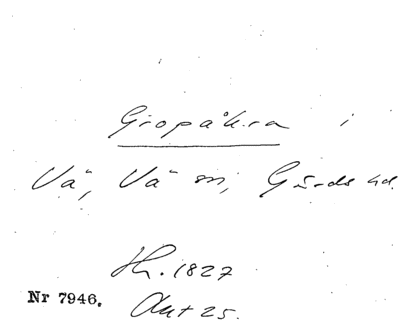 Gropåkra i
Vä, Vä sn, Gärds hd.
Sk. 1827
Nr 7946. Akt 25.